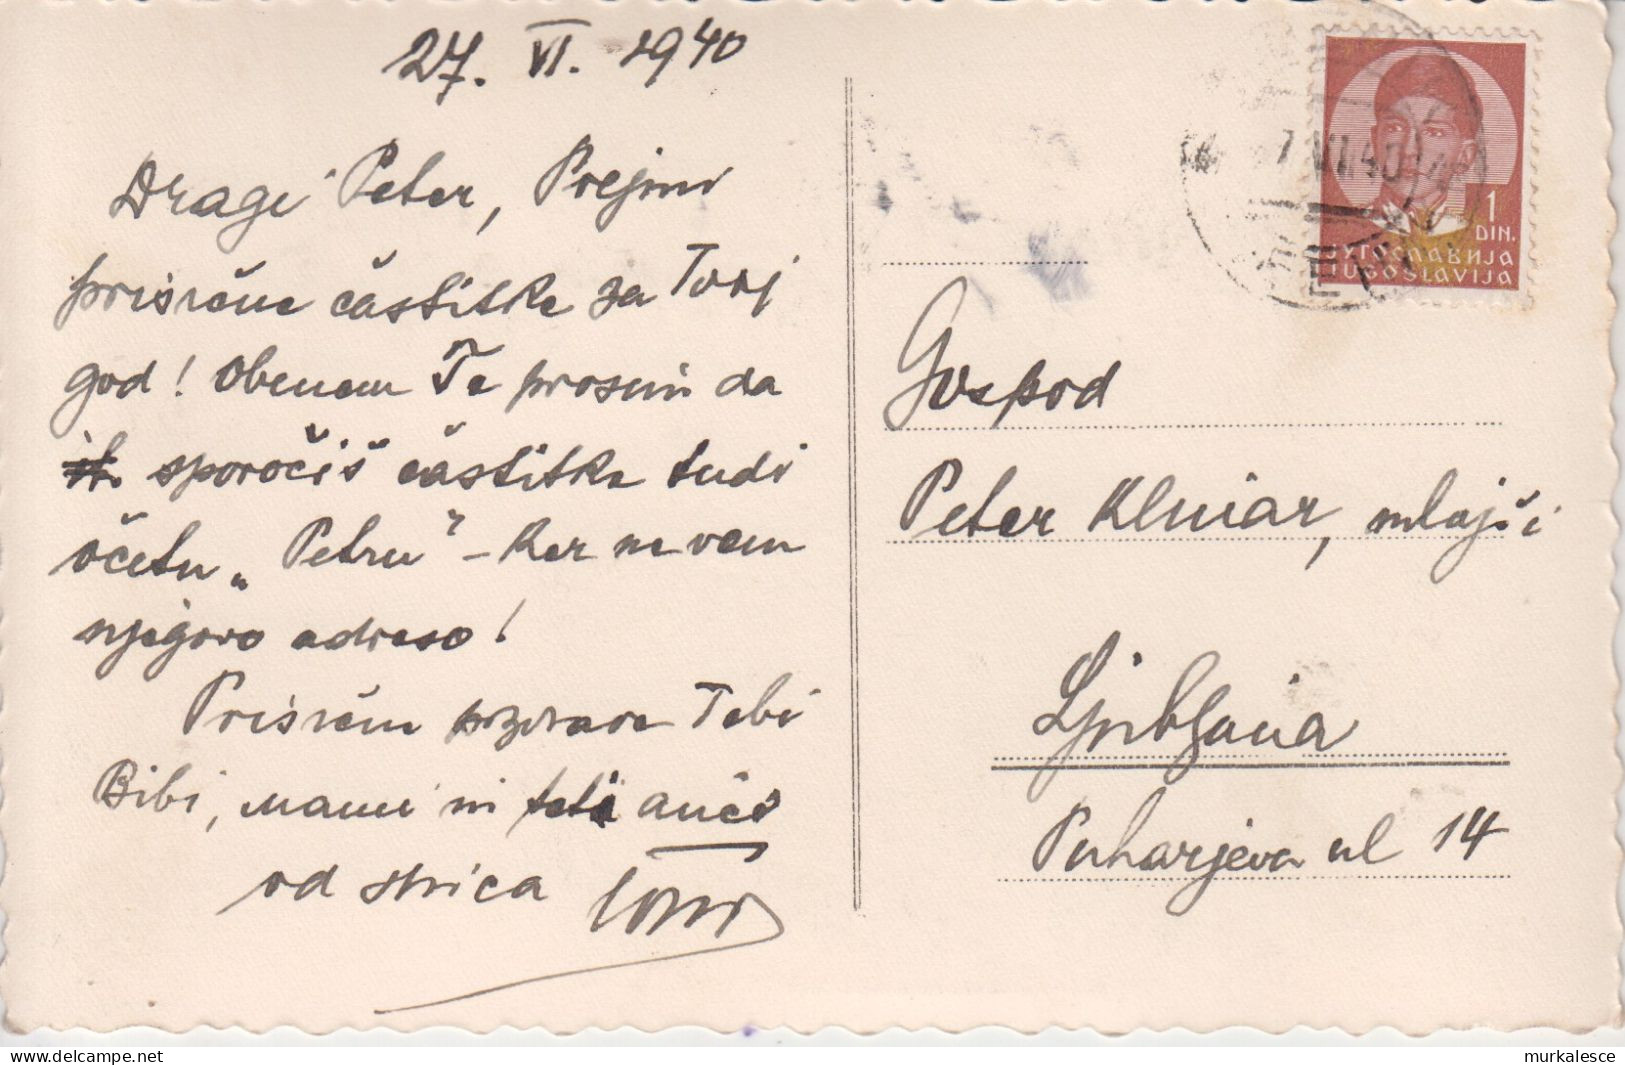 27. VI. 1940
Dragi Peter, Prejmi
prisrčne častitke za Tvoj
god! Obenem Te prosim da
sporočiš častitke tudi
očetu „Petru" - ker ne vem
njegovo adreso!
Prisrčne pozdrave Tebi
Bibi, mami in teti anči
od strica
1
DIN.
ЈУГОСЛАВИЈА
JUGOSLAVIJA
VI.40
Gospod
Peter Klmar, mlajši
Ljubljana
Puharjeva ul 14
murkalesce